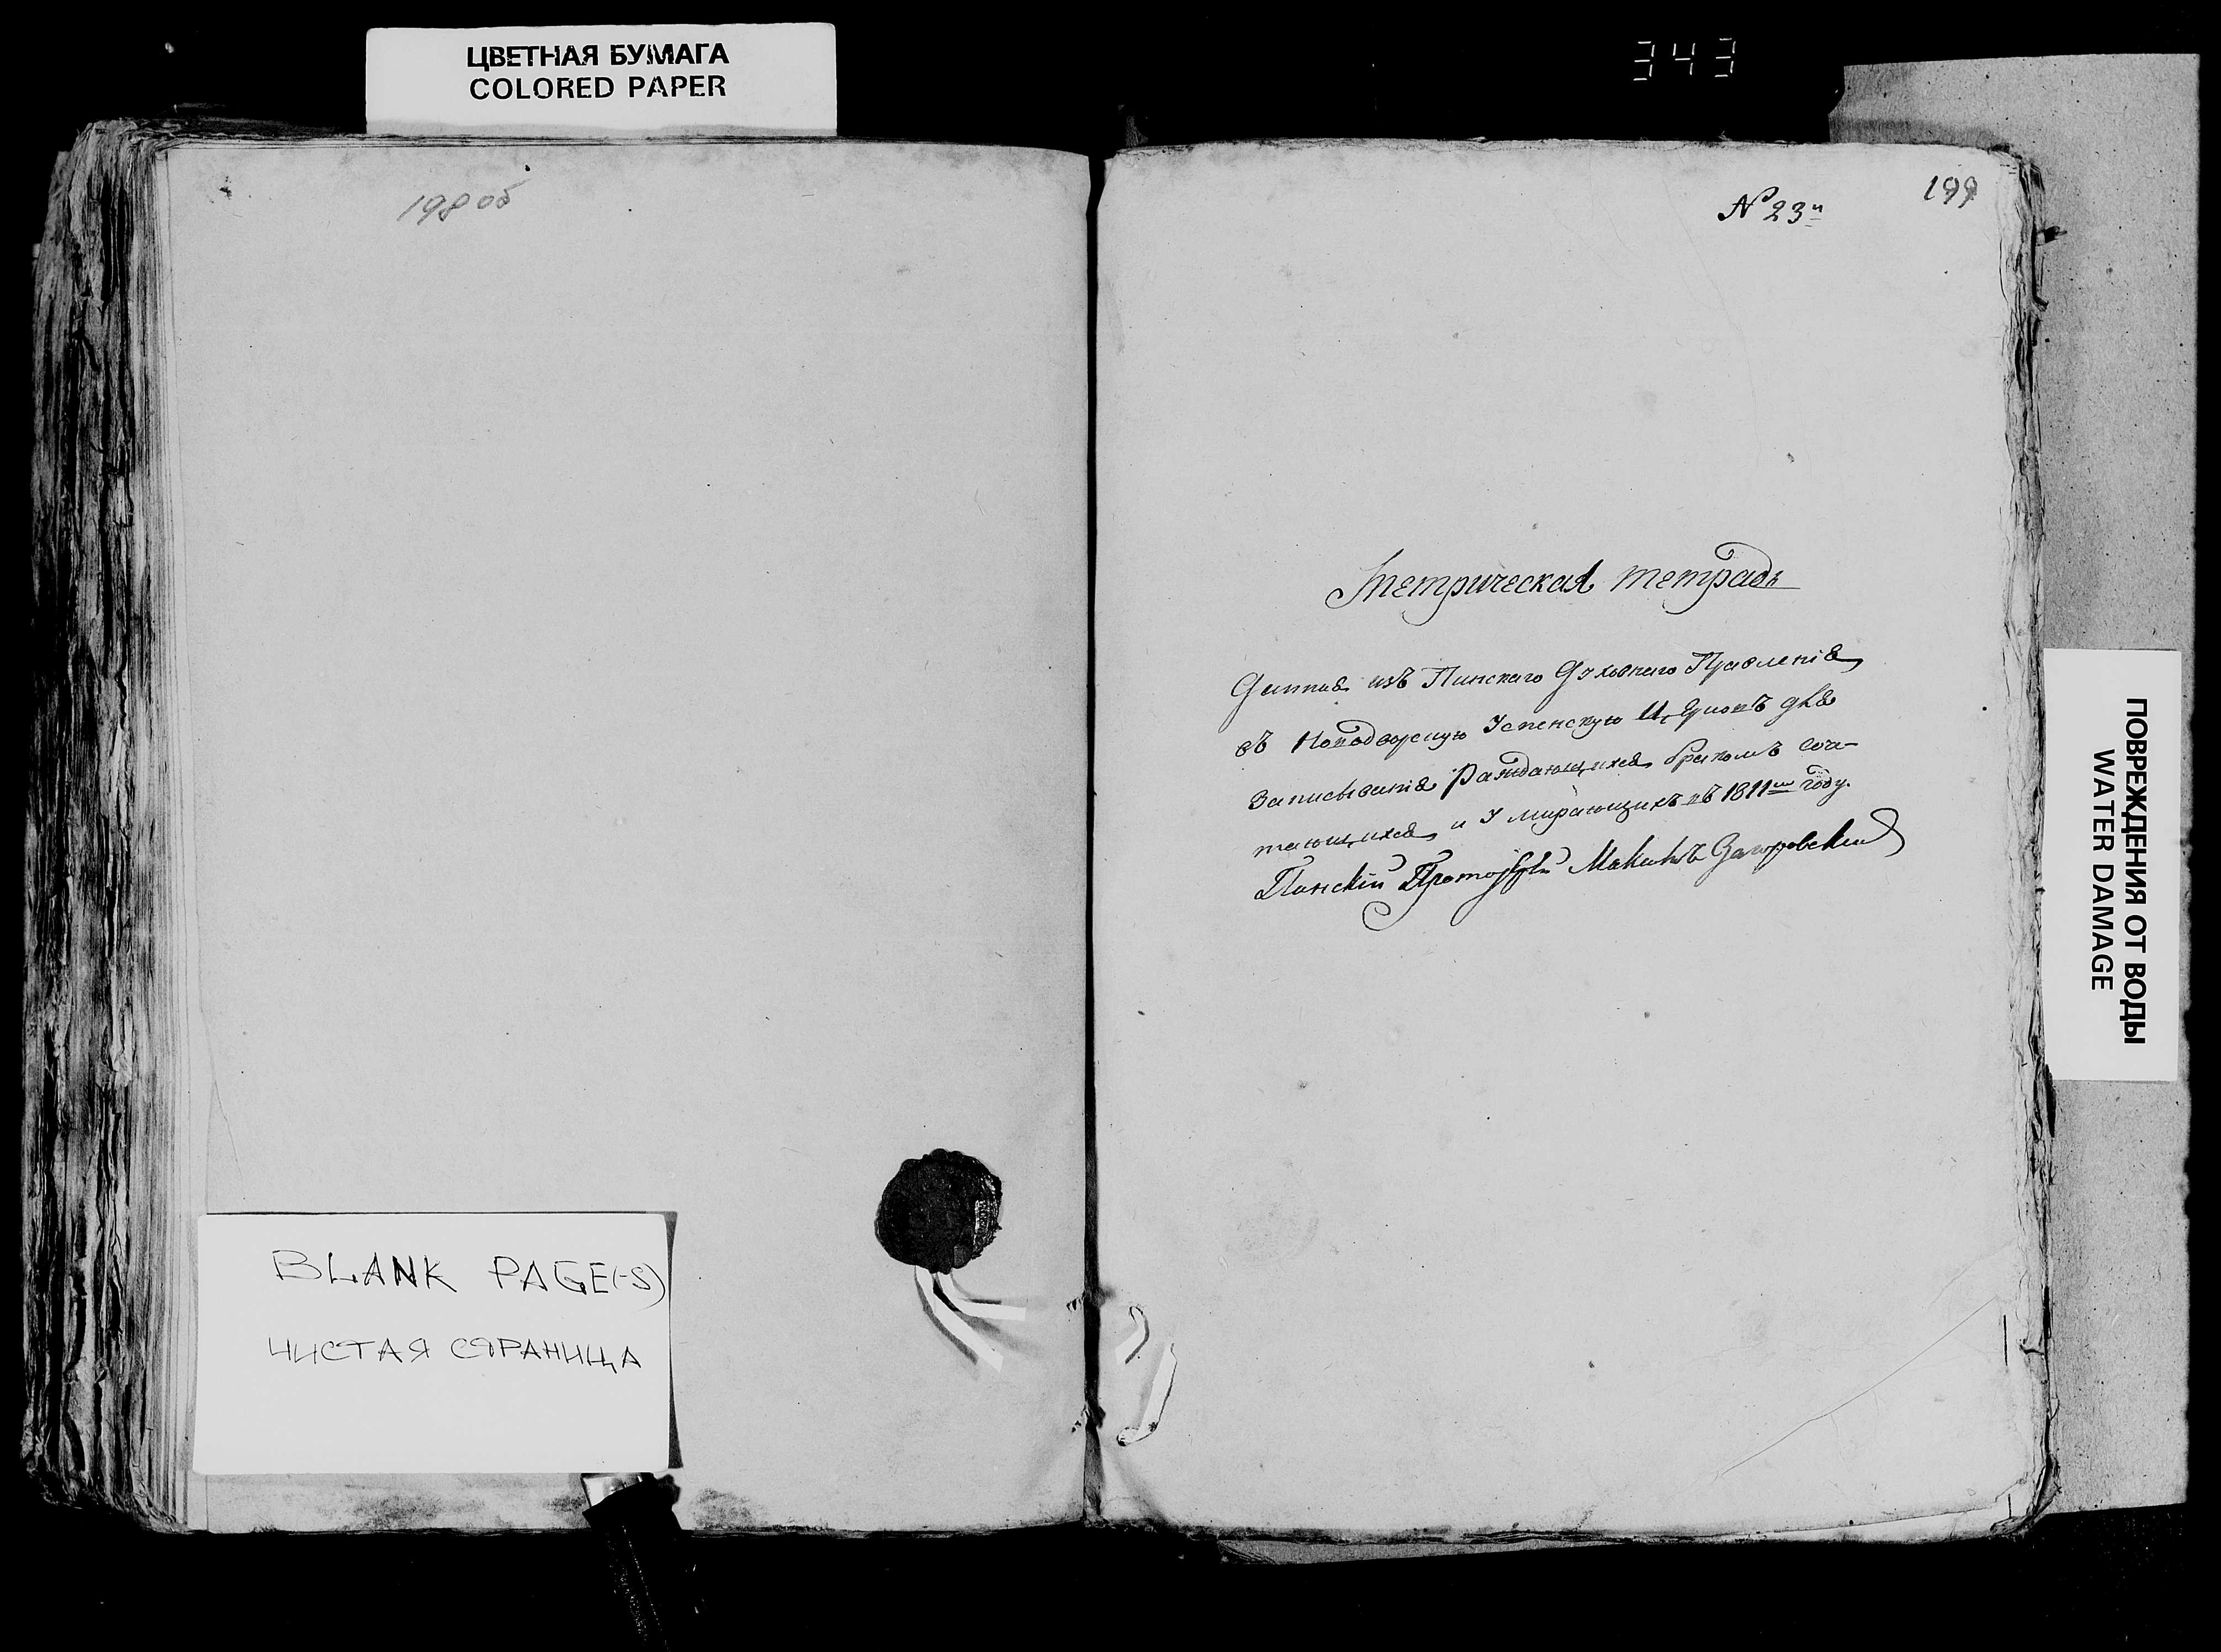 ЦВЕТНАЯ БУМАГА
COLORED PAPER
343
198 об
N 23й
199
Метрическая тетрадь
Данная изъ Пинскаго Духовнаго Правленія
въ Новодворскую Успенскую Церковъ для
Записыванія Раждающихся бракомъ соче-
тающихся и Умирающихъ въ 1811м году.
Пинскій Протоіерей
BLANK PAGE(-S)
ЧИСТАЯ СТРАНИЦА
ПОВРЕЖДЕНИЯ ОТ ВОДЫ
WATER DAMAGE